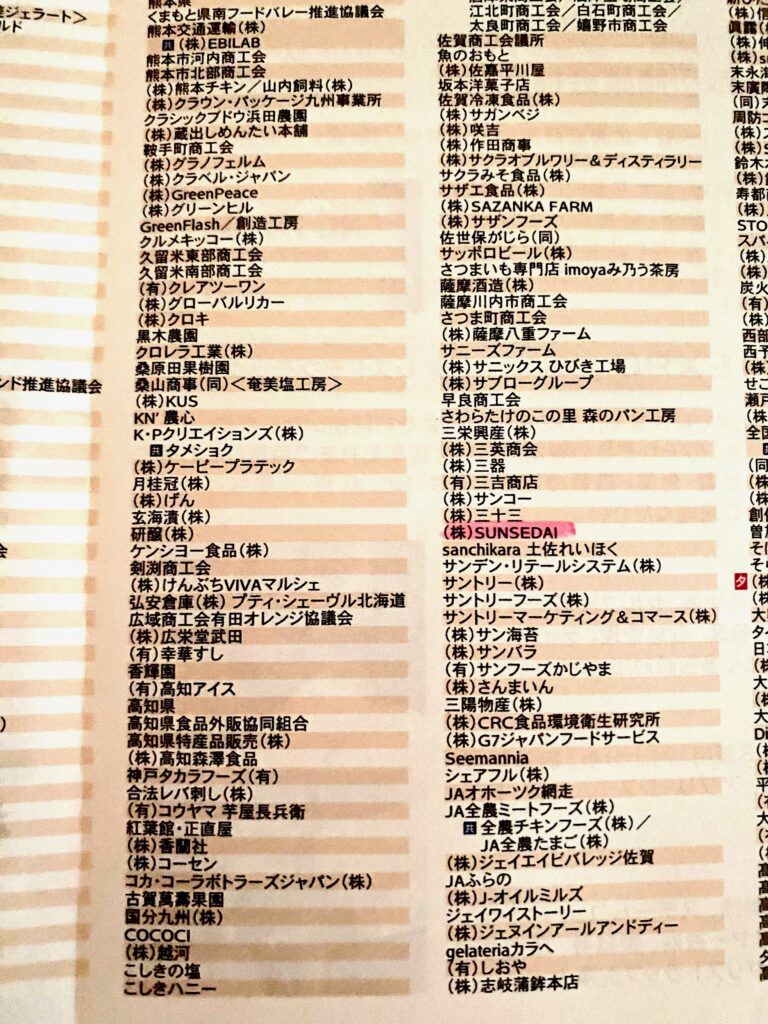 菓ジェラート＞
ルド
ンド推進協議会
会
熊本県
くまもと県南フードバレー推進協議会
熊本交通運輸(株)
共 (株)EBILAB
熊本市河内商工会
熊本市北部商工会
(株)熊本チキン／山内飼料(株)
(株)クラウン・パッケージ九州事業所
クラシックブドウ浜田農園
(株)蔵出しめんたい本舗
鞍手町商工会
(株)グラノフェルム
(株)クラベル・ジャパン
(株)GreenPeace
(株)グリーンヒル
GreenFlash／創造工房
クルメキッコー(株)
久留米東部商工会
久留米南部商工会
(有)クレアツーワン
(株)グローバルリカー
(株)クロキ
黒木農園
クロレラ工業(株)
桑原田果樹園
桑山商事(同)＜奄美塩工房＞
(株)KUS
KN’農心
K・Pクリエイションズ(株)
共 タメショク
(株)ケーピープラテック
月桂冠(株)
(株)げん
玄海漬(株)
研醸(株)
ケンショー食品(株)
剣渕商工会
(株)けんぶちVIVAマルシェ
弘安倉庫(株) プティ・シェーヴル北海道
広域商工会有田オレンジ協議会
(株)広栄堂武田
(有)幸華すし
香輝園
(有)高知アイス
高知県
高知県食品外販協同組合
高知県特産品販売(株)
(株)高知森澤食品
神戸タカラフーズ(有)
合法レバ刺し(株)
(有)コウヤマ 芋屋長兵衛
紅葉館・正直屋
(株)香蘭社
(株)コーセン
コカ・コーラボトラーズジャパン(株)
古賀萬壽果園
国分九州(株)
COCOCI
(株)越河
こしきの塩
こしきハニー
江北町商工会／白石町商工会／
太良町商工会／嬉野市商工会
佐賀商工会議所
魚のおもと
(株)佐嘉平川屋
坂本洋菓子店
佐賀冷凍食品(株)
(株)サガンベジ
(株)咲吉
(株)作田商事
(株)サクラオブルワリー＆ディスティラリー
サクラみそ食品(株)
サザエ食品(株)
(株)SAZANKA FARM
(株)サザンフーズ
佐世保がじら(同)
サッポロビール(株)
さつまいも専門店 imoyaみ乃う茶房
薩摩酒造(株)
薩摩川内市商工会
さつま町商工会
(株)薩摩八重ファーム
サニーズファーム
(株)サニックス ひびき工場
(株)サブローグループ
早良商工会
さわらたけのこの里 森のパン工房
三栄興産(株)
(株)三英商会
(株)三器
(有)三吉商店
(株)サンコー
(株)三十三
(株)SUNSEDAI
sanchikara 土佐れいほく
サンデン・リテールシステム(株)
サントリー(株)
サントリーフーズ(株)
サントリーマーケティング＆コマース(株)
(株)サン海苔
(株)サンバラ
(有)サンフーズかじやま
(株)さんまいん
三陽物産(株)
(株)CRC食品環境衛生研究所
(株)G7ジャパンフードサービス
Seemannia
シェアフル(株)
JAオホーツク網走
JA全農ミートフーズ(株)
共 全農チキンフーズ(株)／
JA全農たまご(株)
(株)ジェイエイビバレッジ佐賀
JAふらの
(株)J-オイルミルズ
ジェイワイストーリー
(株)ジェヌインアールアンドディー
gelateriaカラヘ
(有)しおや
(株)志岐蒲鉾本店